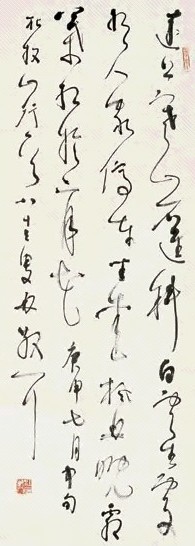 遠上寒山石徑斜白雲生處
有人家停車坐愛楓林晚霜
葉紅於二月花庚申七月中旬
杜牧山行